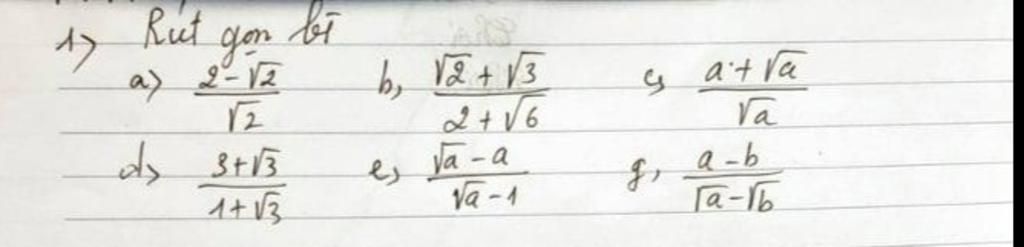 1) Rút gọn bt
a) \frac{2-\sqrt{2}}{\sqrt{2}} b, \frac{\sqrt{2}+\sqrt{3}}{2+\sqrt{6}} c, \frac{a+\sqrt{a}}{\sqrt{a}}
d) \frac{3+\sqrt{3}}{1+\sqrt{3}} e, \frac{\sqrt{a}-a}{\sqrt{a}-1} g, \frac{a-b}{\sqrt{a}-\sqrt{b}}